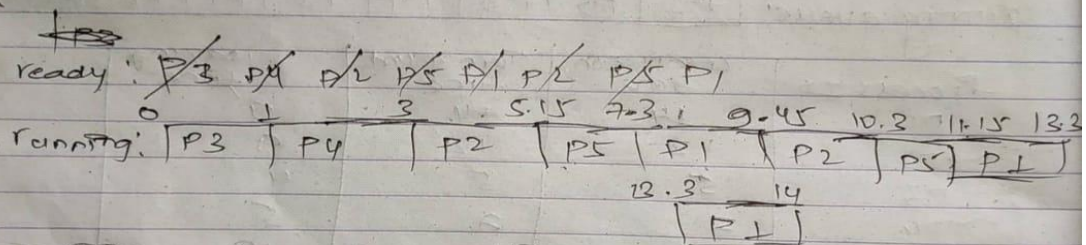 ready: P3 P4 P2 P5 P1 P2 P5 P1
0 1 3 5.15 7.3 9.45 10.3 11.15 13.3
running: P3 P4 P2 P5 P1 P2 P5 P1
13.3 14
P1